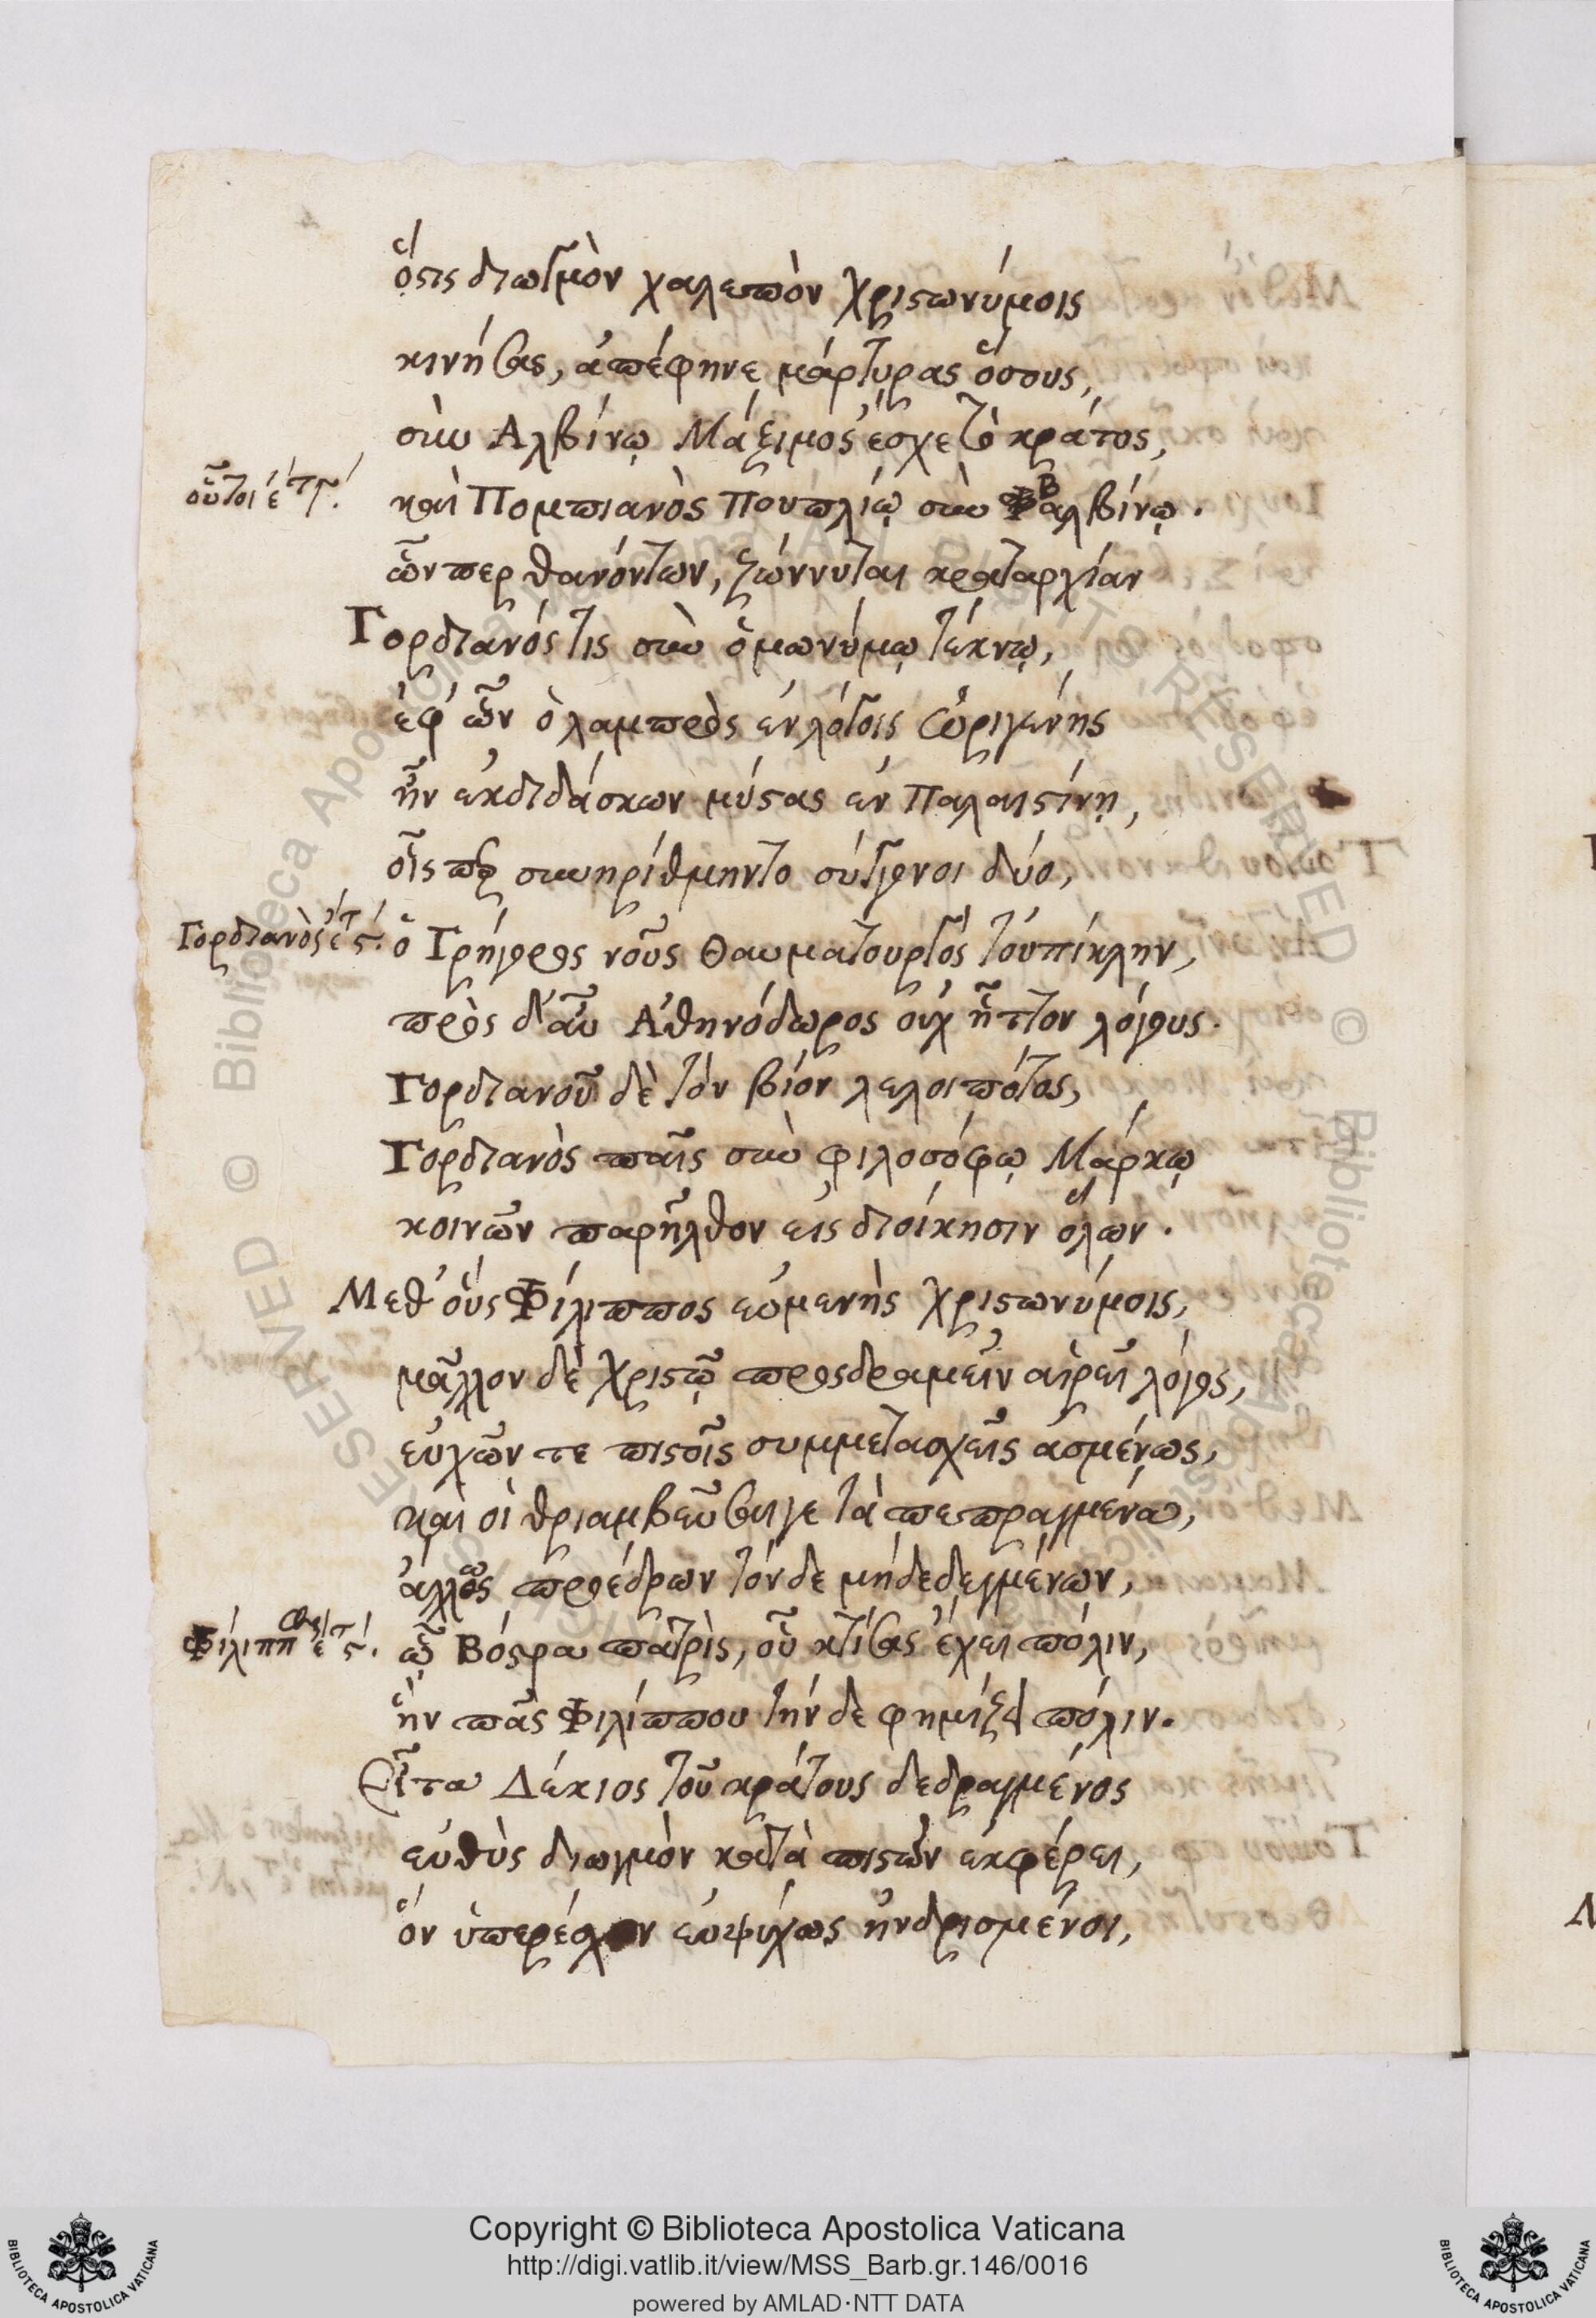 ὅστις διωγμὸν χαλεπὸν χριστωνύμοις
κινήσας, ἀπέφηνε μάρτυρας ὅσους,
σὺν Αλβίνῳ Μάξιμος ἔσχε τὸ κράτος,
οὗτοι ἔτη
καὶ Πομπιανὸς Πουπλίῳ σὺν Βαλβίνῳ.
ὧνπερ θανόντων, ζώννυται κραταρχίαν
Γορδιανός τις σὺν ὁμωνύμῳ τέκνῳ,
ἐφ' ὧν ὁ λαμπρὸς ἐν λόγοις Ὠριγένης
ἦν ἐκδιδάσκων μύστας ἐν Παλαιστίνῃ,
οἷς περ συνηρίθμηντο σύγγονοι δύο,
Γορδιανὸς ἔτ ς.
ὁ Γρήγορος νοῦς Θαυματουργὸς τοὐπίκλην,
πρὸς δ' αὖ Ἀθηνόδωρος οὐχ ἧττον λόγους.
Γορδιανοῦ δὲ τὸν βίον λελοιπότος,
Γορδιανὸς παῖς σὺν φιλοσόφῳ Μάρκῳ
κοινῶν παρῆλθον εἰς διοίκησιν ὅλων.
Μεθ' οὓς Φίλιππος εὐμενὴς χριστωνύμοις,
μᾶλλον δὲ Χριστῷ προσδραμεῖν αἱρεῖ λόγος,
εὐχῶν τε πιστοῖς συμμετασχεῖς ἀσμένως,
καὶ οἱ θριαμβεῦσαι γε τὰ πεπραγμένα,
ἄλλως προέδρων τόνδε μὴ δεδεγμένων,
Φίλιππος ἔτ ς.
ᾧ Βόστρα πατρὶς, οὗ κτίσας ἔχει πόλιν,
ἣν πᾶς Φιλίππου τήνδε φημίζει πόλιν.
Εἶτα Δέκιος τοῦ κράτους δεδραγμένος
εὐθὺς διωγμὸν κατὰ πιστῶν ἐκφέρει,
ὃν ὑπερέσχον εὐψύχως ἠνδρισμένοι,
Copyright © Biblioteca Apostolica Vaticana
http://digi.vatlib.it/view/MSS_Barb.gr.146/0016
powered by AMLAD·NTT DATA